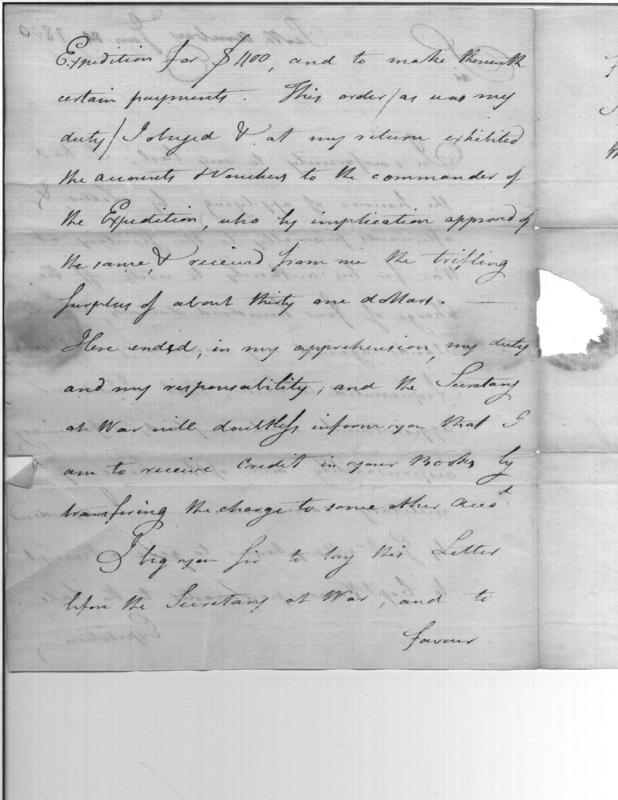 Expedition for $1100, and to make therewith
certain payments. This order/as was my
duty/I obeyed & at my return exhibited
the accounts & Vouchers to the commander of
the Expedition, who by implication approved of
the same, & received from me the trifling
surplus of about thirty one dollars. —
Here ended, in my apprehension, my duty
and my responsability, and the Secretary
at War will doubtless inform you that I
am to receive Credit in your Books by
transfering the charge to some other Acco^t
I beg you Sir to lay this Letter
before the Secretary at War, and to
favour